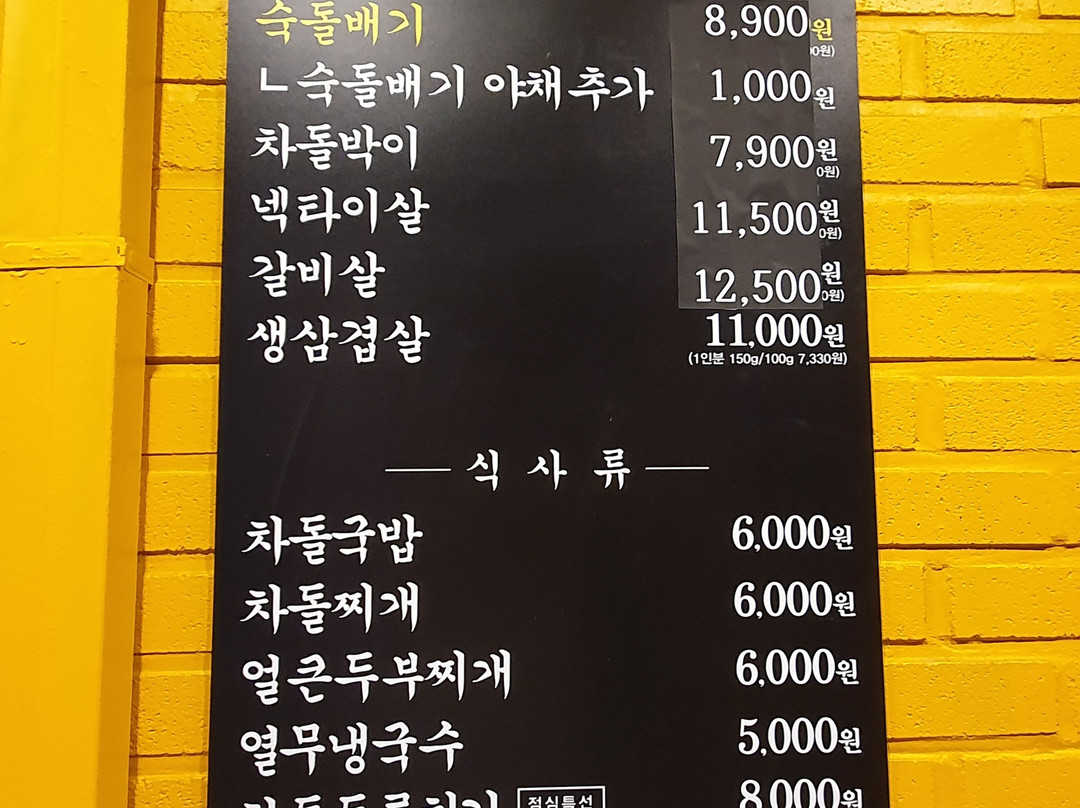 숙돌배기 8,900원
0원)
ㄴ숙돌배기 야채추가 1,000원
차돌박이 7,900원
0원)
넥타이살 11,500원
0원)
갈비살 12,500원
0원)
생삼겹살 11,000원
(1인분 150g/100g 7,330원)
식사류
차돌국밥 6,000원
차돌찌개 6,000원
얼큰두부찌개 6,000원
열무냉국수 5,000원
점심특선 8,000원